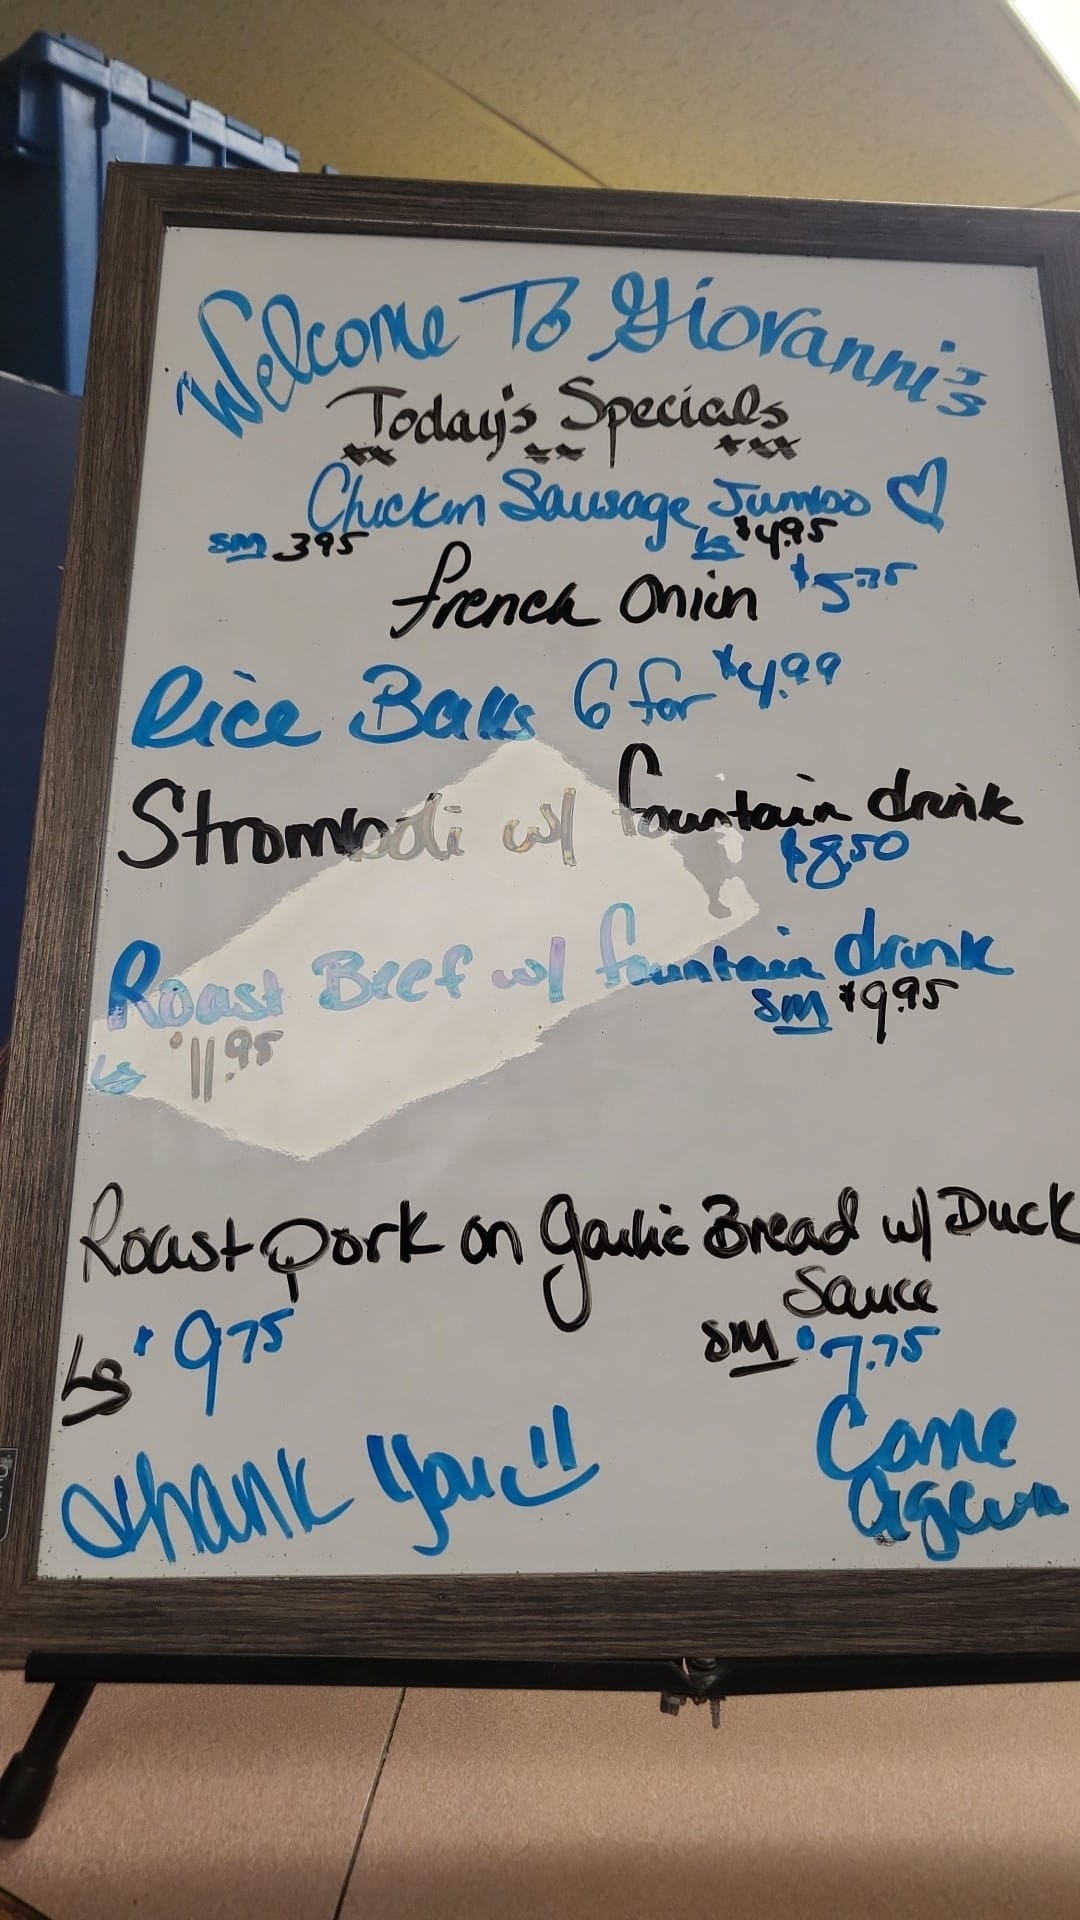 Welcome To Giovanni's
Today's Specials
Chicken Sausage Jumbo
sm 395 Lg $4.95
French Onion $5.75
Rice Balls 6 for $4.99
Stromboli w/ fountain drink
$8.50
Roast Beef w/ fountain drink
Lg $11.95 sm $9.95
Roast Pork on Garlic Bread w/ Duck
Sauce
Lg $975 sm $7.75
Thank You
Come
again